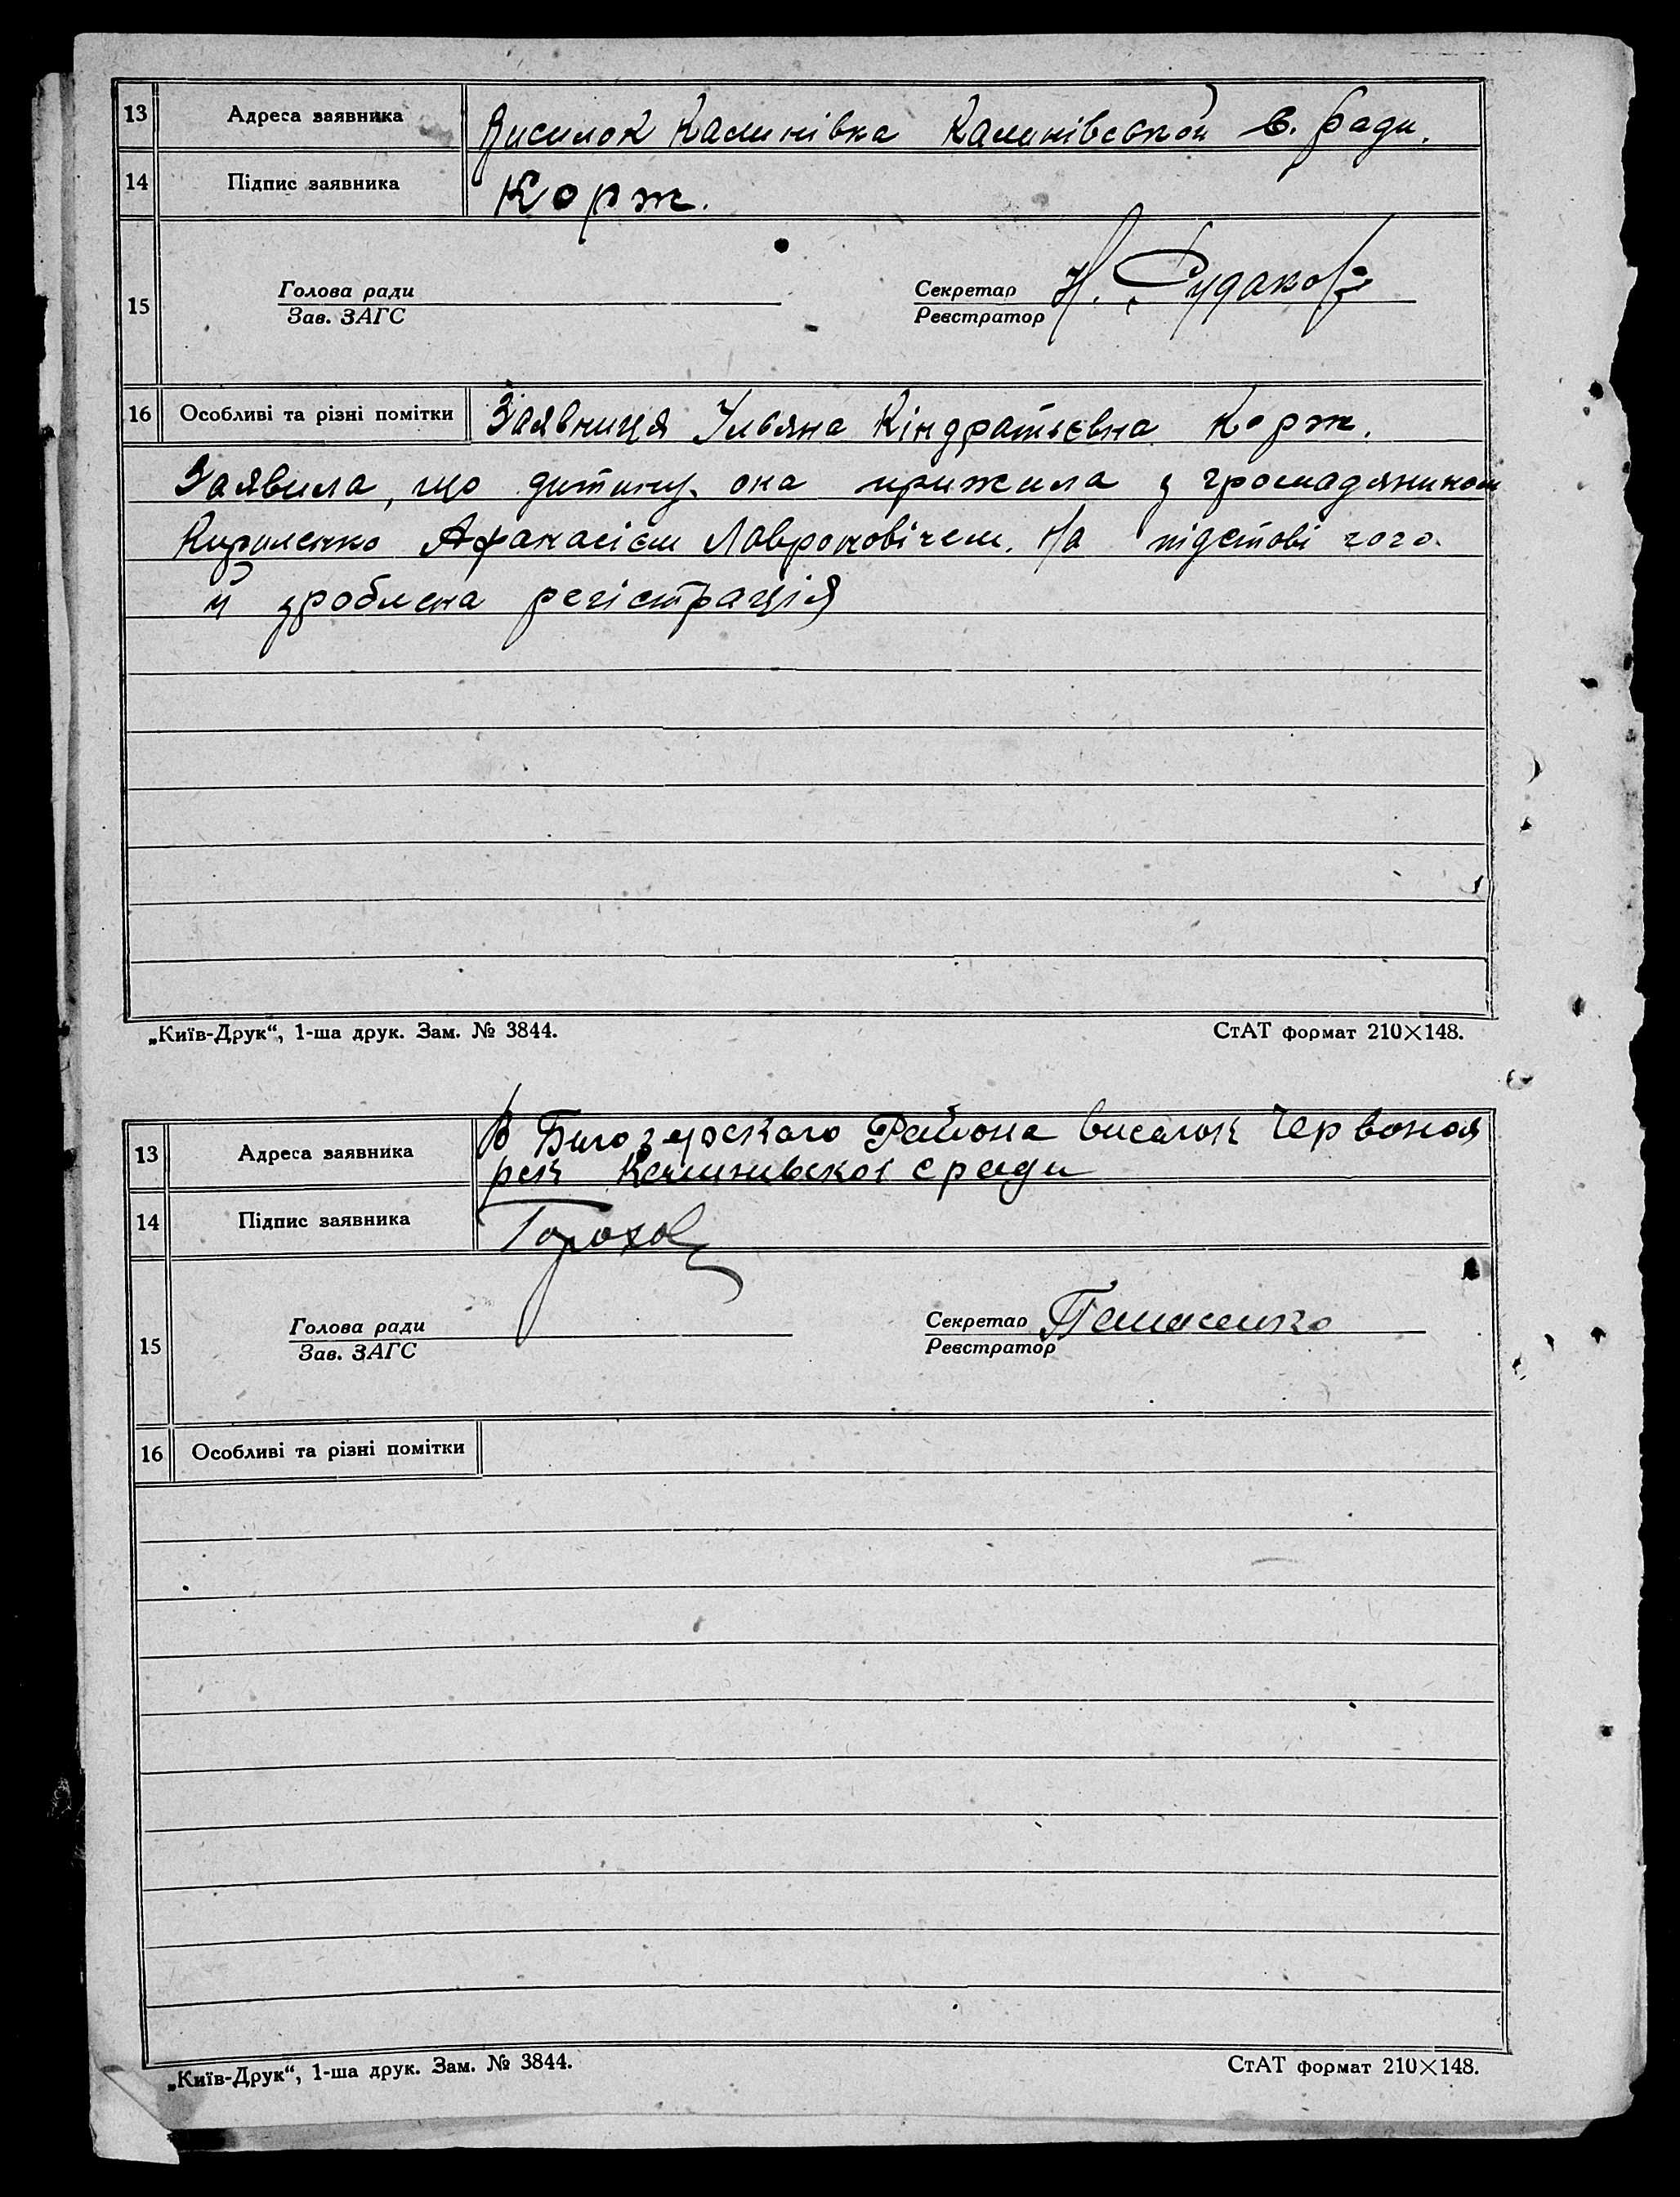 13 Адреса заявника Висилок Калинівка Калинівской с. Ради.
14 Підпис заявника Корж.
15 Голова ради Зав. ЗАГС Секретар Реєстратор Н. Судаков
16 Особливі та різні помітки Заявниця Ульяна Кіндратьєвна Корж.
Заявила, що дитину она прижила з громадянином
Кириленко Афанасієм Лавроновічем. На підстові чого
й зроблена регістрація
„Київ-Друк“, 1-ша друк. Зам. № 3844. СтАТ формат 210×148.
13 Адреса заявника В Билозерского Района виселок Червоная
Калинивскоі с ради
14 Підпис заявника Горохов
15 Голова ради Зав. ЗАГС Секретар Реєстратор
16 Особливі та різні помітки
„Київ-Друк“, 1-ша друк. Зам. № 3844. СтАТ формат 210×148.